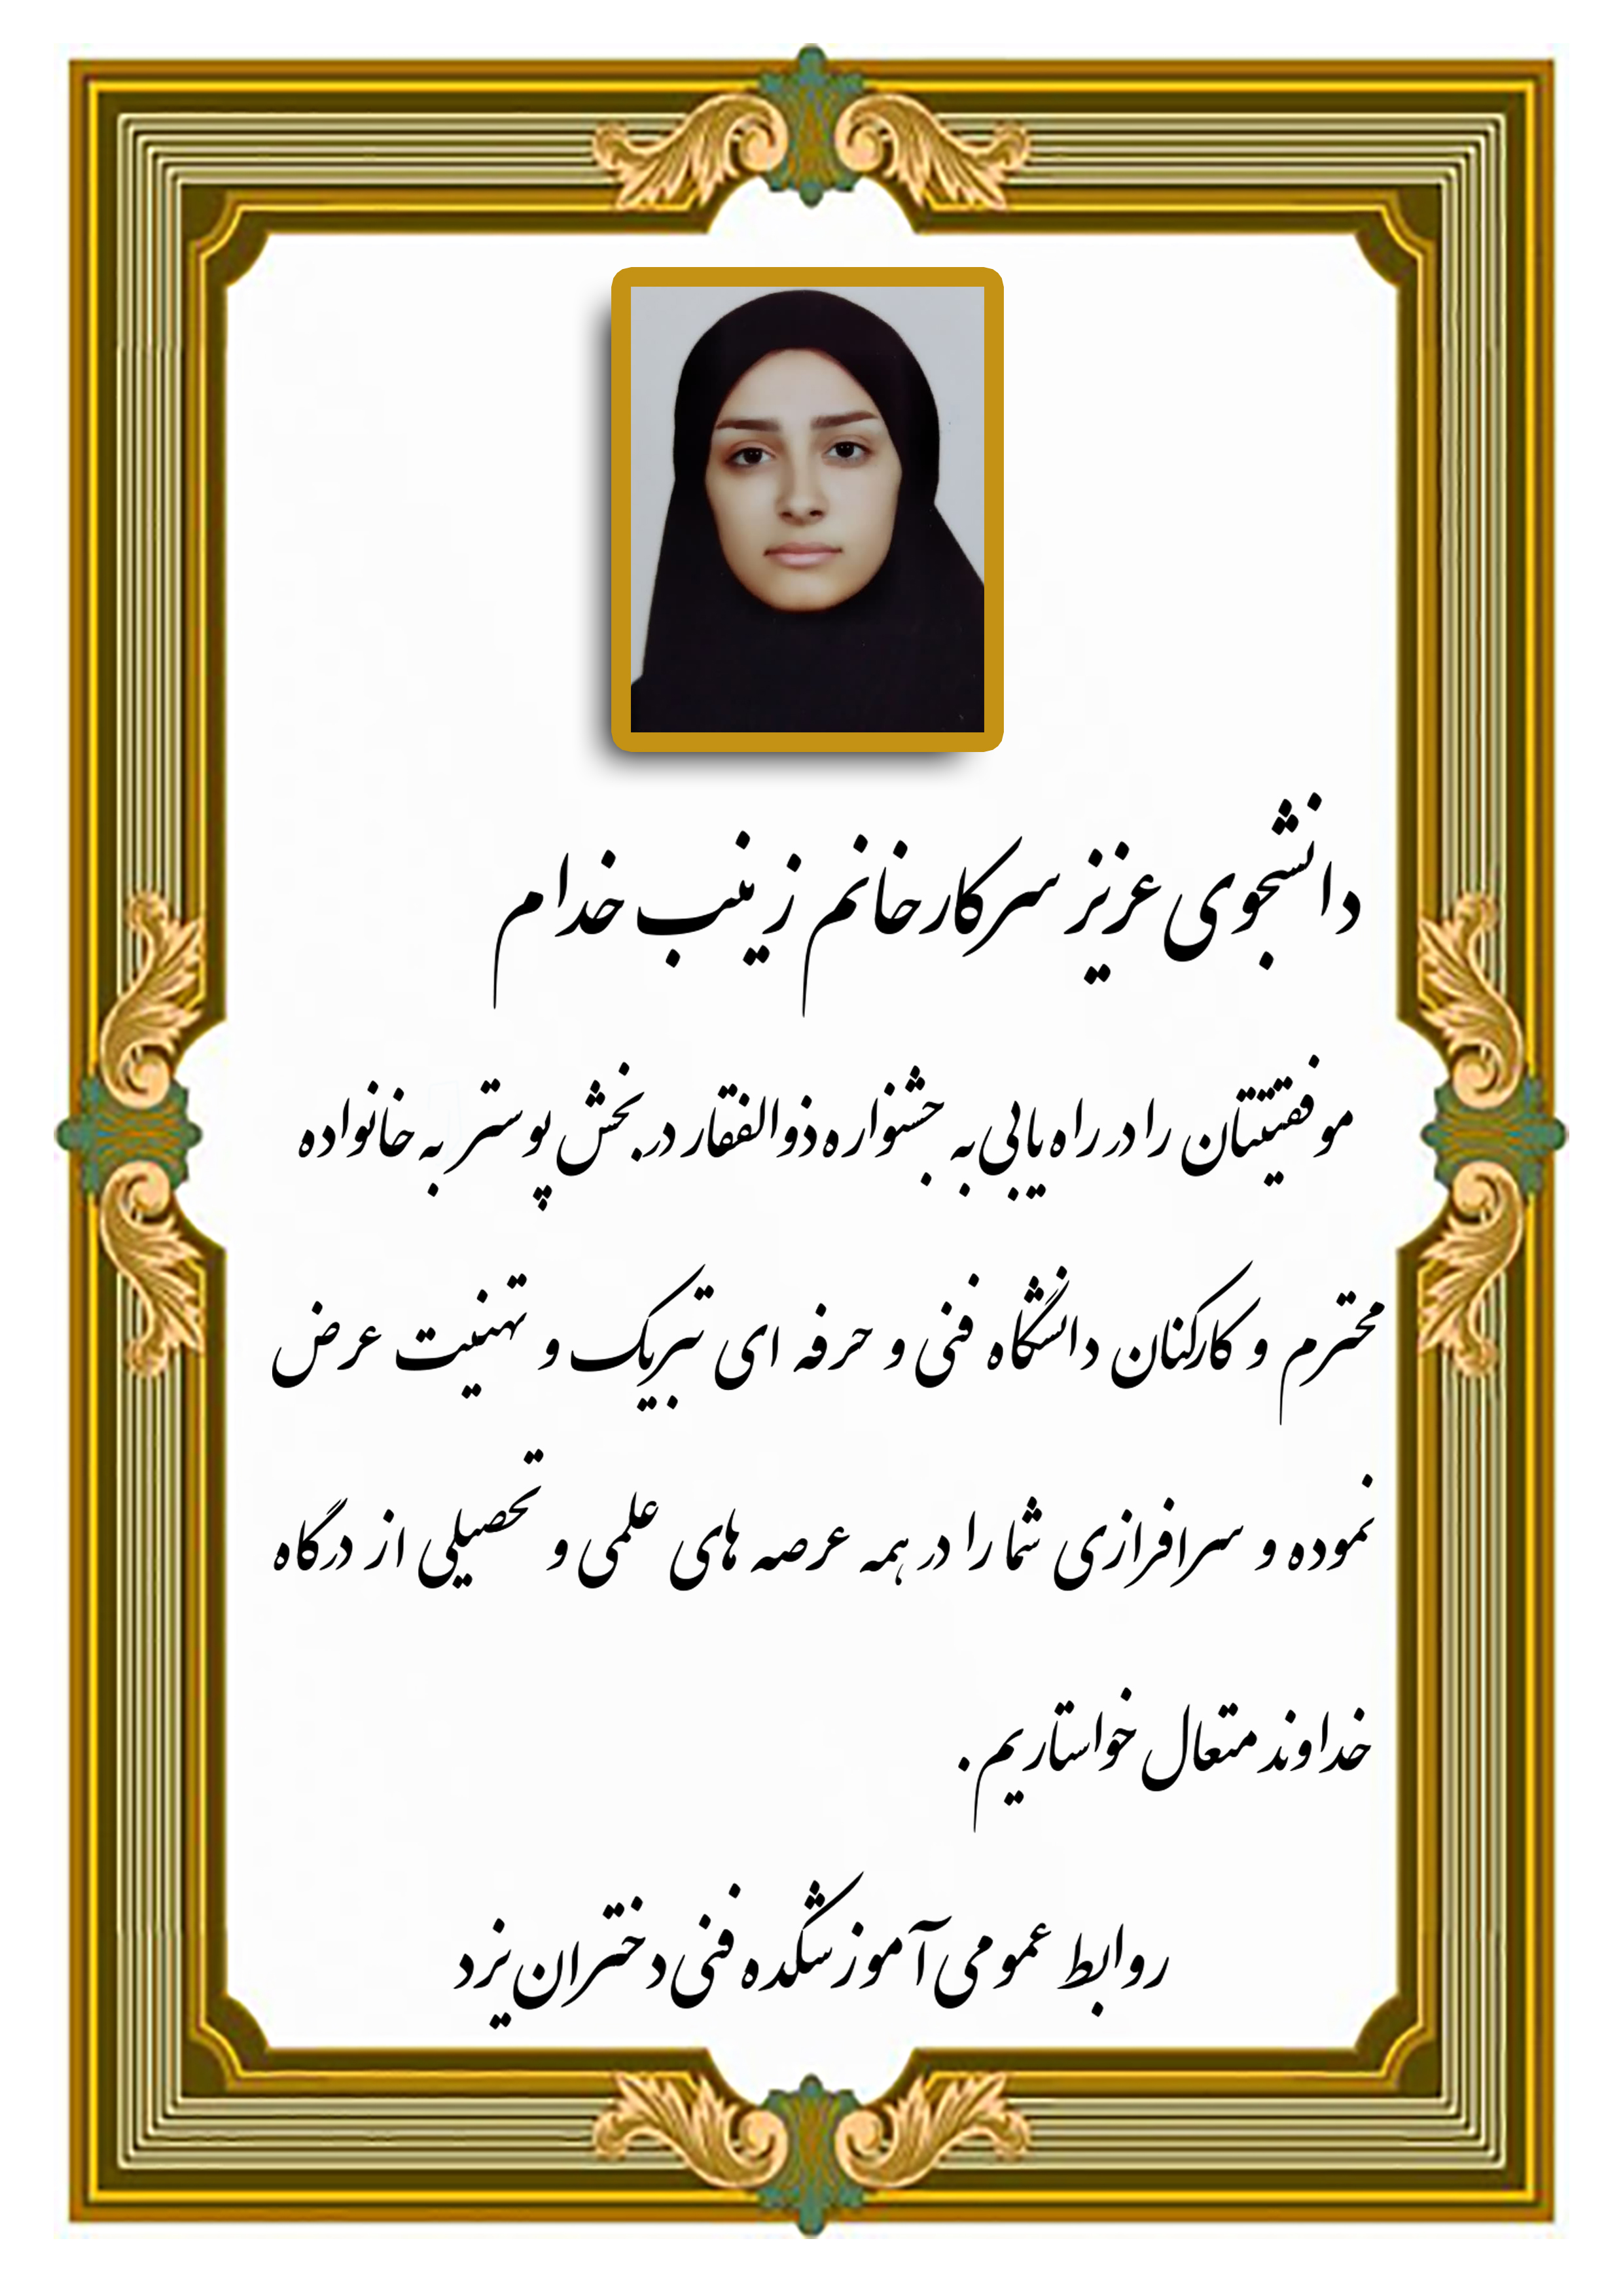 دانشجوی عزیز سرکار خانم زینب خدام
موفقیتتان را در راه یابی به جشنواره ذوالفقار در بخش پوستر به خانواده
محترم و کارکنان دانشگاه فنی و حرفه ای تبریک و تهنیت عرض
نموده و سرافرازی شما را در همه عرصه های علمی و تحصیلی از درگاه
خداوند متعال خواستاریم .
روابط عمومی آموزشکده فنی دختران یزد